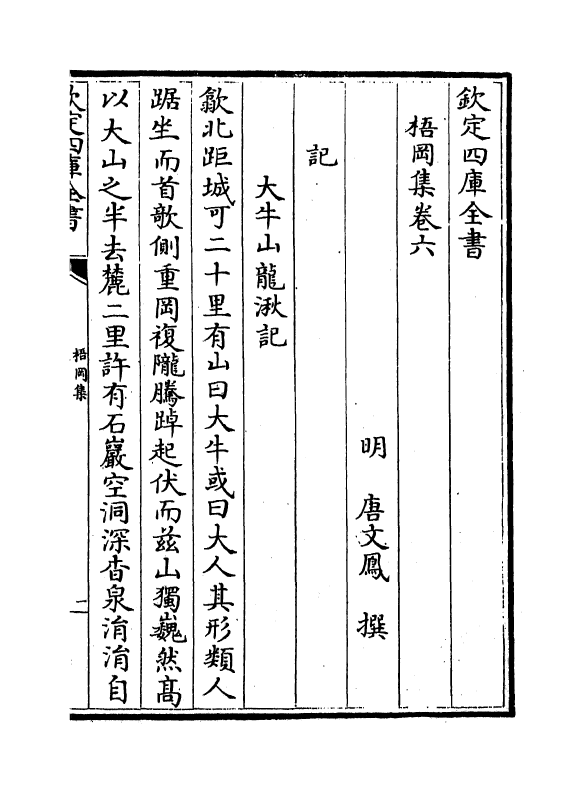 欽定四庫全書
梧岡集卷六
明　唐文鳳　撰
記
大牛山龍湫記
歙北距城可二十里有山曰大牛或曰大人其形類人
踞坐而首欹側重岡複隴騰踔起伏而兹山獨巍然髙
以大山之半去麓二里許有石巖空洞深杳泉涓涓自
欽定四庫全書
梧岡集